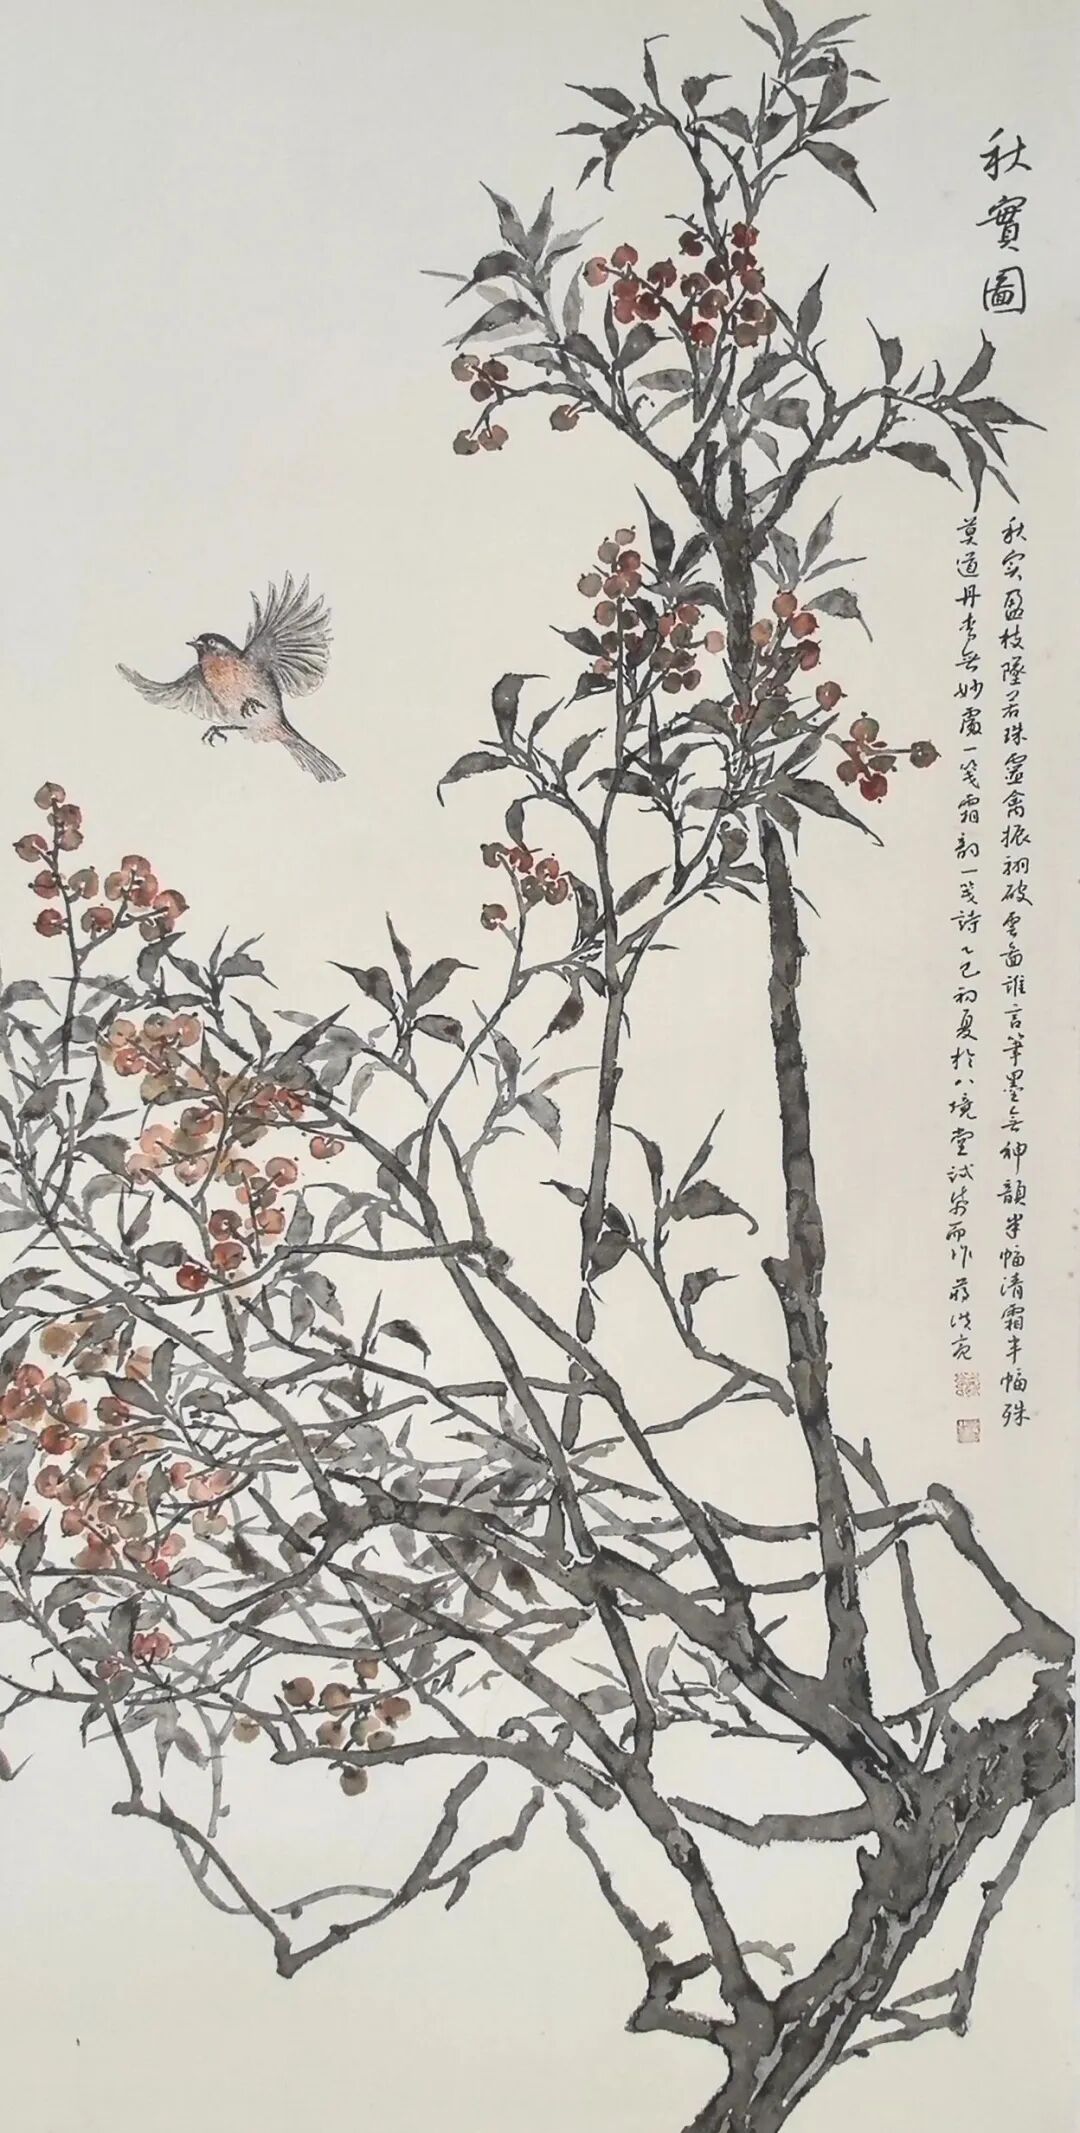 秋實圖
秋实盈枝墜若珠靈禽振翊破雲畵誰言筆墨无神韻半幅清霜半幅殊
莫道丹青无妙處一箋霜韵一箋詩乙巳初夏於八境堂試而作蔣洪亮